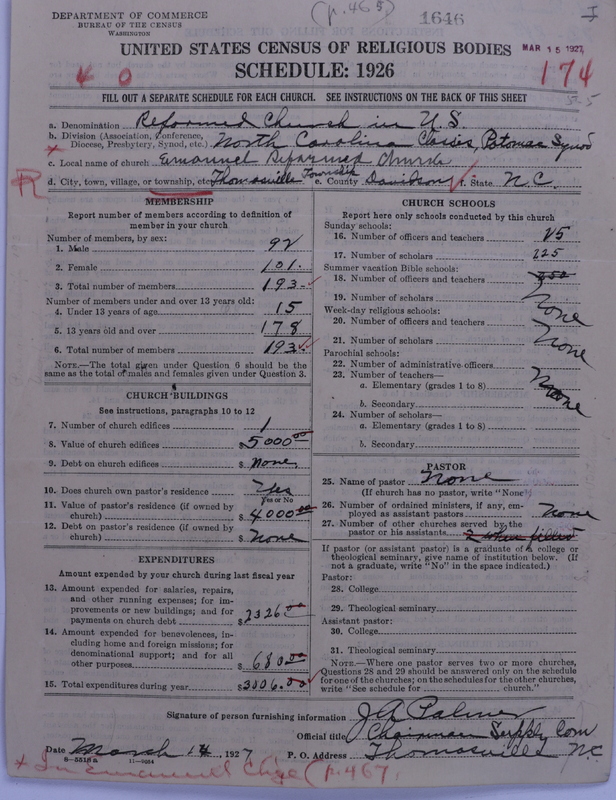 (p. 465)
1646
I
DEPARTMENT OF COMMERCE
BUREAU OF THE CENSUS
WASHINGTON
UNITED STATES CENSUS OF RELIGIOUS BODIES
MAR 15 1927
SCHEDULE: 1926
4 0
174
FILL OUT A SEPARATE SCHEDULE FOR EACH CHURCH. SEE INSTRUCTIONS ON THE BACK OF THIS SHEET
a. Denomination Reformed Church in U.S.
b. Division (Association, Conference, Diocese, Presbytery, Synod, etc.) North Carolina Classis, Potomac Synod
c. Local name of church Emanuel Reformed Church
R
d. City, town, village, or township, etc. Thomasville Township e. County Davidson f. State N.C.
MEMBERSHIP
Report number of members according to definition of
member in your church
Number of members, by sex:
1. Male 92
2. Female 101.
3. Total number of members 193
Number of members under and over 13 years old:
4. Under 13 years of age 15
5. 13 years old and over 178
6. Total number of members 193
NOTE.—The total given under Question 6 should be
same as the total of males and females given under Question 3.
CHURCH BUILDINGS
See instructions, paragraphs 10 to 12
7. Number of church edifices 1
8. Value of church edifices $5000 00
9. Debt on church edifices $ None
10. Does church own pastor's residence Yes
Yes or No
11. Value of pastor's residence (if owned by
church) $4000 00
12. Debt on pastor's residence (if owned by
church) $ None
EXPENDITURES
Amount expended by your church during last fiscal year
13. Amount expended for salaries, repairs,
and other running expenses; for im-
provements or new buildings; and for
payments on church debt $2326.00
14. Amount expended for benevolences, in-
cluding home and foreign missions; for
denominational support; and for all
other purposes $680.00
15. Total expenditures during year $3006.00
CHURCH SCHOOLS
Report here only schools conducted by this church
Sunday schools:
16. Number of officers and teachers 25
17. Number of scholars 225
Summer vacation Bible schools:
18. Number of officers and teachers 250
19. Number of scholars None
Week-day religious schools:
20. Number of officers and teachers
21. Number of scholars None
Parochial schools:
22. Number of administrative officers
23. Number of teachers—
a. Elementary (grades 1 to 8) None
b. Secondary
24. Number of scholars—
a. Elementary (grades 1 to 8)
b. Secondary
PASTOR
25. Name of pastor None
(If church has no pastor, write "None")
26. Number of ordained ministers, if any, em-
ployed as assistant pastors None
27. Number of other churches served by the
pastor or his assistants 2 when filled
If pastor (or assistant pastor) is a graduate of a college or
theological seminary, give name of institution below. (If
not a graduate, write "No" in the space indicated.)
Pastor:
28. College
29. Theological seminary
Assistant pastor:
30. College
31. Theological seminary
NOTE.—Where one pastor serves two or more churches,
Questions 28 and 29 should be answered only on the schedule
for one of the churches; on the schedules for the other churches,
write "See schedule for church."
Signature of person furnishing information J A Palmer
Official title Chairman Supply Com
Date March 14, 1927 P. O. Address Thomasville NC
8-5518a 11-9264
* In Emanuel Chge (p. 467,